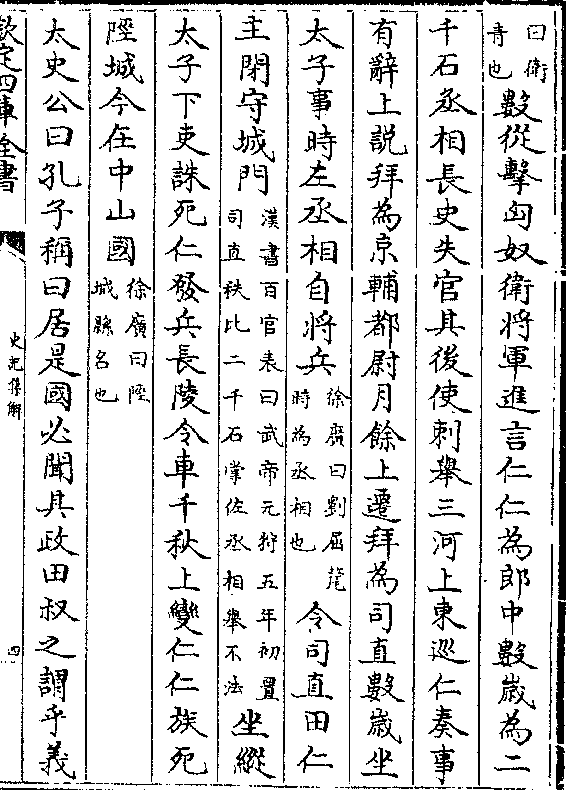 曰衛
青也數從擊匈奴衛將軍進言仁仁為郎中數嵗為二
千石丞相長史失官其後使刺舉三河上東巡仁奏事
有辭上説拜為京輔都尉月餘上遷拜為司直數嵗坐
太子事時左丞相自將兵徐廣曰劉屈氂
時為丞相也令司直田仁
主閉守城門漢書百官表曰武帝元狩五年初置
司直秩比二千石掌佐丞相舉不法坐縱
太子下吏誅死仁發兵長陵令車千秋上變仁仁族死
陘城今在中山國徐廣曰陘
城縣名也
太史公曰孔子稱曰居是國必聞其政田叔之謂乎義
欽定四庫全書
史記集解
四